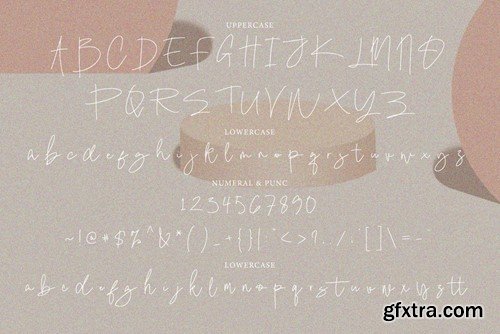 UPPERCASE
ABCDEFGHIJKLMNO
PQRSTUVWXYZ
LOWERCASE
abcdefghijklmnopqrstuvwxyz
NUMERAL & PUNC
1234567890
~!@#$%^&*()_+{}|:"<>?,./;'[]\=-
LOWERCASE
abcdefghijklmnopqrstuvwxyztt
gfxtra.com